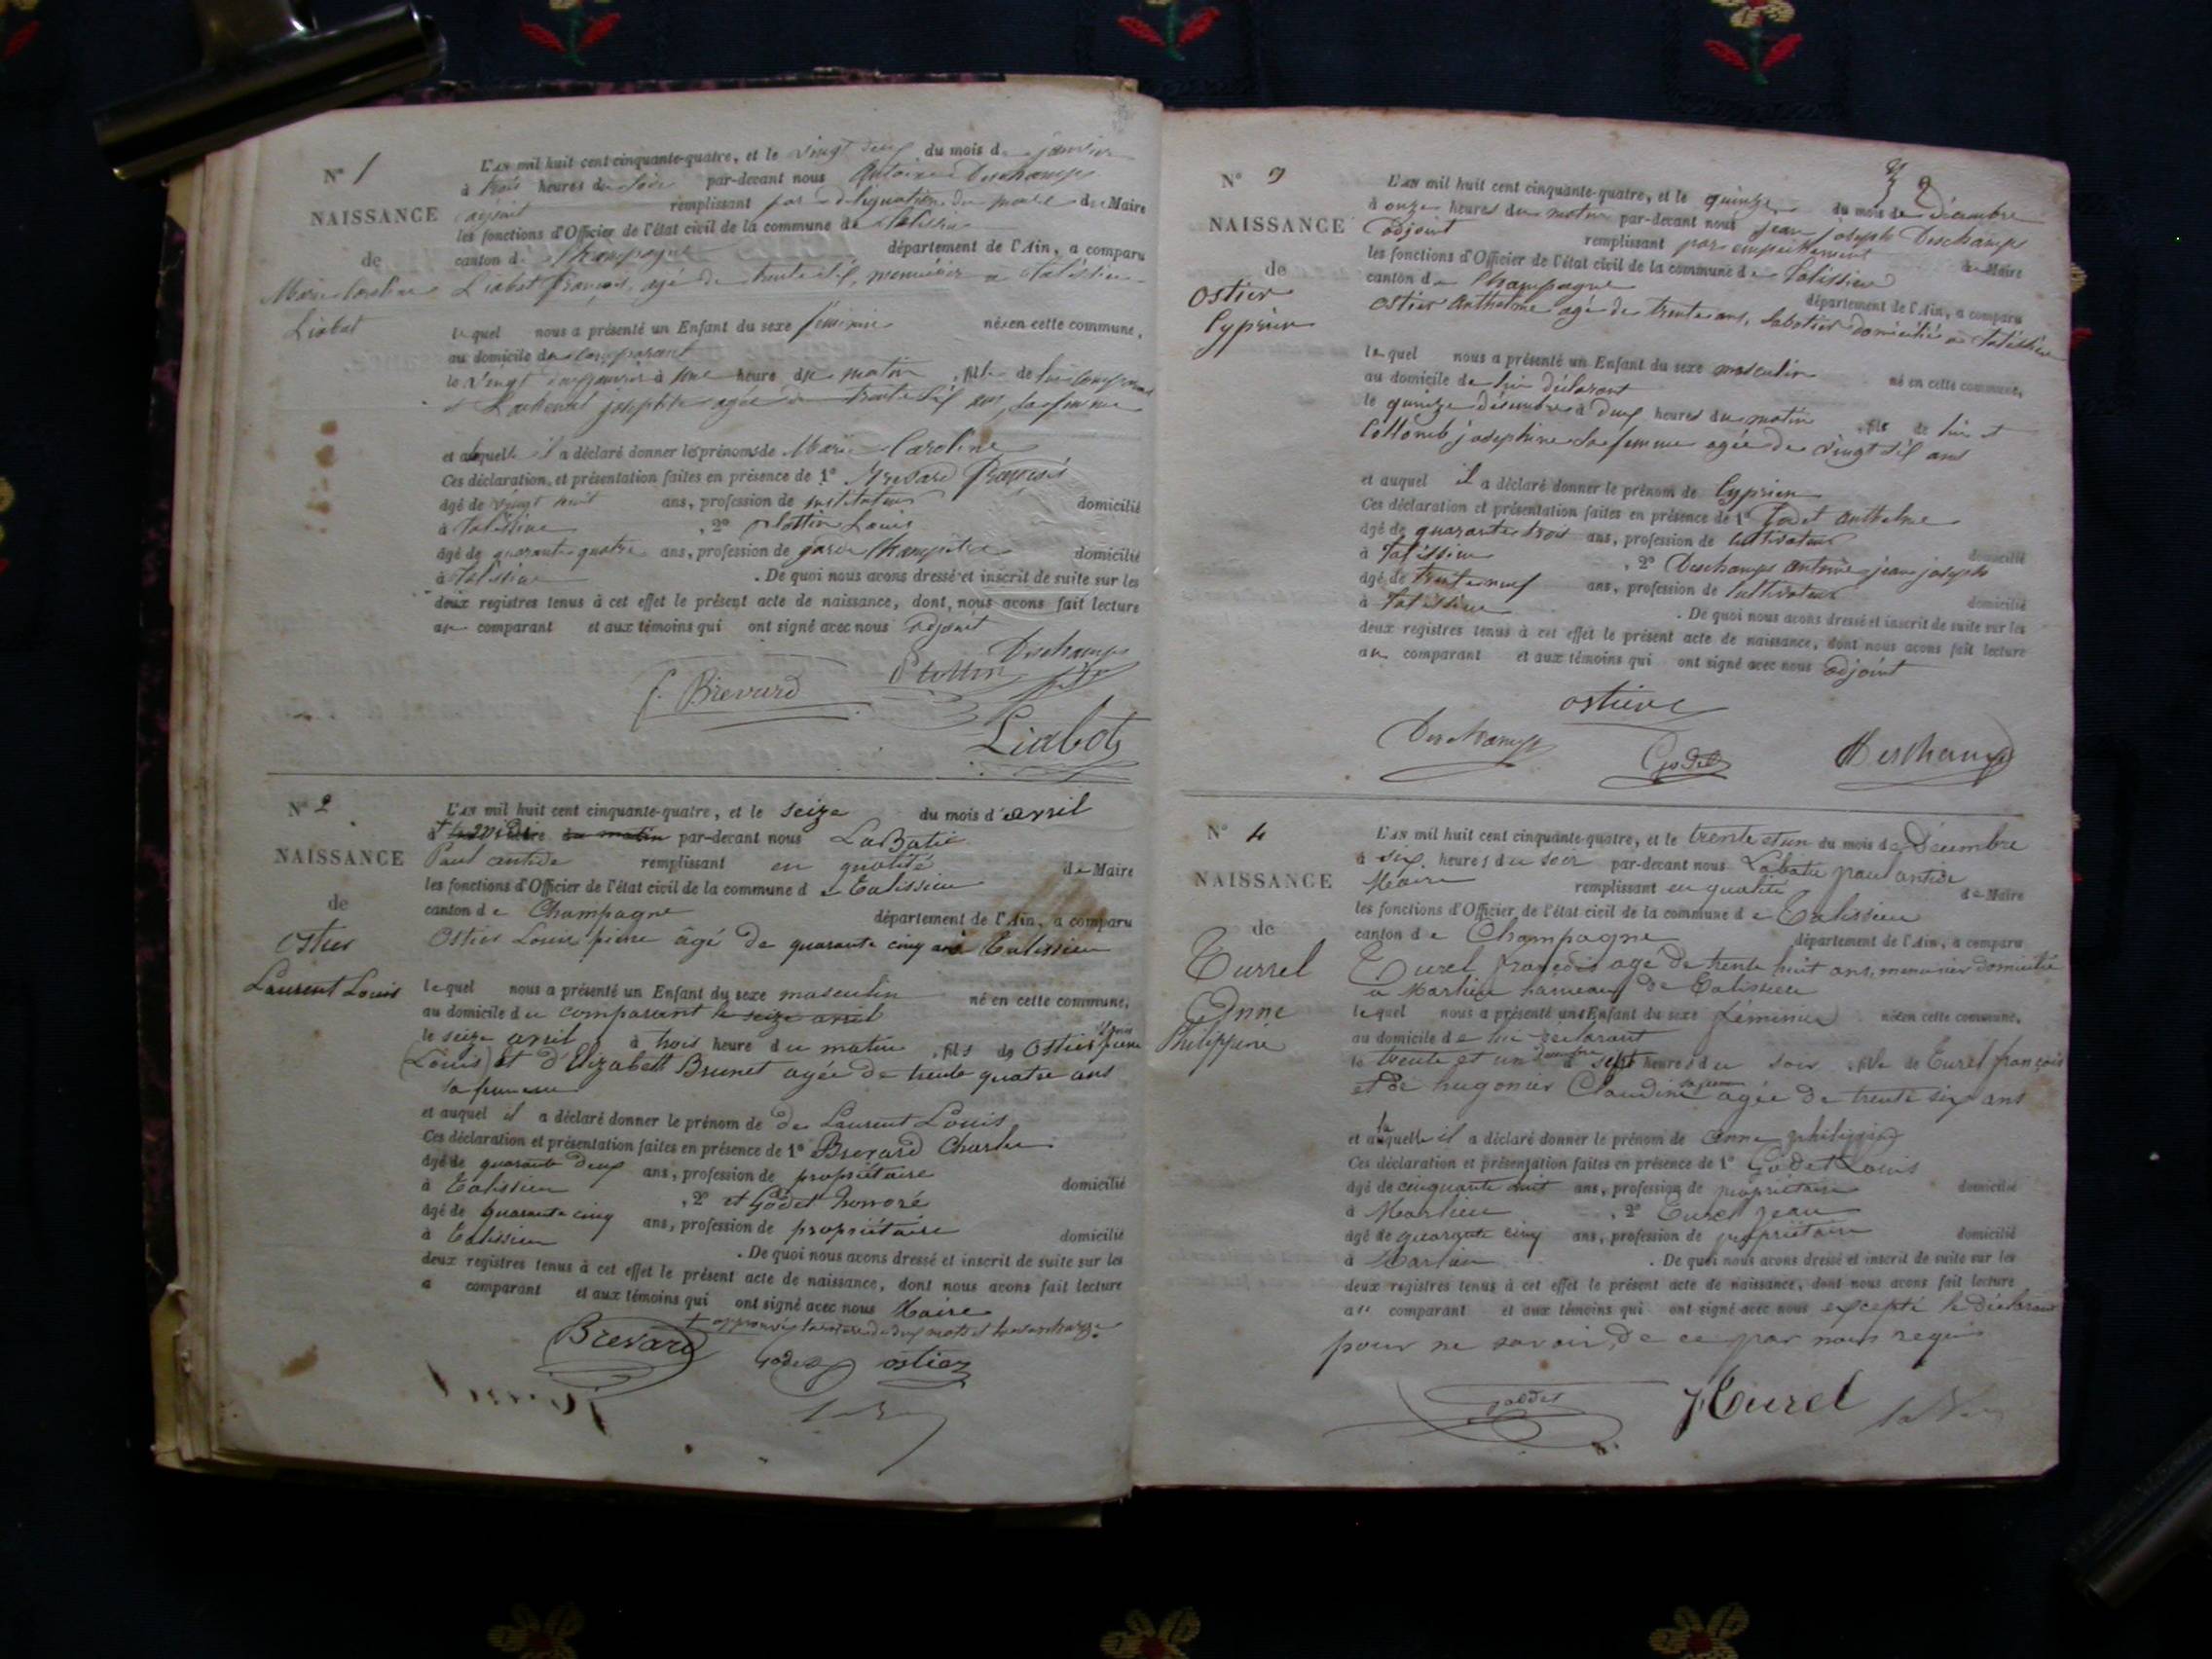 N° 1
NAISSANCE
de
Marie Caroline
Liabot
L'AN mil huit cent cinquante-quatre, et le vingt deux du mois de janvier
à trois heures du soir par-devant nous Antoine Deschamps
adjoint remplissant par délégation du maire de Maire
les fonctions d'Officier de l'état civil de la commune de Talissieu
canton de Champagne département de l'Ain, a comparu
Liabot françois, agé de trente six, menuisier a Talissieu
lequel nous a présenté un Enfant du sexe féminin née en cette commune,
au domicile du comparant
le vingt deux janvier à une heure du matin, fille de lui comparant
et josephte agée de trente six ans, sa femme
et auquel il a déclaré donner les prénoms de Marie Caroline
Ces déclaration et présentation faites en présence de 1° Brevard François
âgé de vingt huit ans, profession de instituteur domicilié
à Talissieu, 2° Plottin Louis
âgé de quarante quatre ans, profession de garde champêtre domicilié
à Talissieu. De quoi nous avons dressé et inscrit de suite sur les
deux registres tenus à cet effet le présent acte de naissance, dont nous avons fait lecture
au comparant et aux témoins qui ont signé avec nous adjoint
Deschamps
F. Brevard Plottin
Liabot
N° 2
NAISSANCE
de
Ostier
Laurent Louis
L'AN mil huit cent cinquante-quatre, et le seize du mois d'avril
du matin par-devant nous LaBatie
Paul antide remplissant en qualité de Maire
les fonctions d'Officier de l'état civil de la commune de Talissieu
canton de Champagne département de l'Ain, a comparu
Ostier Louis pierre âgé de quarante cinq ans Talissieu
lequel nous a présenté un Enfant du sexe masculin né en cette commune,
au domicile du comparant le seize avril
le seize avril à trois heure du matin, fils de Ostier pierre
(Louis) et d'Elizabeth Brunet agée de trente quatre ans
sa femme
et auquel il a déclaré donner le prénom de de Laurent Louis
Ces déclaration et présentation faites en présence de 1° Brevard Charles
âgé de quarante deux ans, profession de propriétaire domicilié
à Talissieu, 2° et Godet honoré
âgé de quarante cinq ans, profession de propriétaire domicilié
à Talissieu. De quoi nous avons dressé et inscrit de suite sur les
deux registres tenus à cet effet le présent acte de naissance, dont nous avons fait lecture
a comparant et aux témoins qui ont signé avec nous Maire
+ approuvé la rature de deux mots et la surcharge
Brevard Godet ostier
N° 3
NAISSANCE
de
Ostier
Cyprien
2
L'AN mil huit cent cinquante-quatre, et le quinze du mois de décembre
à onze heures du matin par-devant nous Jean joseph Deschamps
adjoint remplissant par empechement de Maire
les fonctions d'Officier de l'état civil de la commune de Talissieu
canton de Champagne département de l'Ain, a comparu
ostier Anthelme agé de trente ans, sabotier domicilié a Talissieu
lequel nous a présenté un Enfant du sexe masculin né en cette commune,
au domicile de lui déclarant
le quinze décembre à deux heures du matin, fils de lui et
Collomb josephine sa femme agée de vingt six ans
et auquel il a déclaré donner le prénom de Cyprien
Ces déclaration et présentation faites en présence de 1° Godet anthelme
âgé de quarante trois ans, profession de cultivateur domicilié
à Talissieu, 2° Deschamps antoine jean joseph
âgé de trente neuf ans, profession de cultivateur domicilié
à Talissieu. De quoi nous avons dressé et inscrit de suite sur les
deux registres tenus à cet effet le présent acte de naissance, dont nous avons fait lecture
au comparant et aux témoins qui ont signé avec nous adjoint
ostier
Deschamps Godet Deschamps
N° 4
NAISSANCE
de
Turrel
Anne
Philippine
L'AN mil huit cent cinquante-quatre, et le trente et un du mois de Décembre
à six heures du soir par-devant nous Labatie paul antide
Maire remplissant en qualité de Maire
les fonctions d'Officier de l'état civil de la commune de Talissieu
canton de Champagne département de l'Ain, a comparu
Turel françois agé de trente huit ans, menuisier domicilié
a Marlieu hameau de Talissieu
lequel nous a présenté un Enfant du sexe féminin née en cette commune,
au domicile de lui déclarant
le trente et un décembre à sept heures du soir, fille de Turel françois
et de hugonier Claudine sa femme agée de trente six ans
et a laquelle il a déclaré donner le prénom de anne philippine
Ces déclaration et présentation faites en présence de 1° Godet Louis
âgé de cinquante huit ans, profession de propriétaire domicilié
à Marlieu, 2° Turel jean
âgé de quarante cinq ans, profession de propriétaire domicilié
à Marlieu. De quoi nous avons dressé et inscrit de suite sur les
deux registres tenus à cet effet le présent acte de naissance, dont nous avons fait lecture
au comparant et aux témoins qui ont signé avec nous excepté le déclarant
pour ne savoir, de ce par nous requis
godet Turel